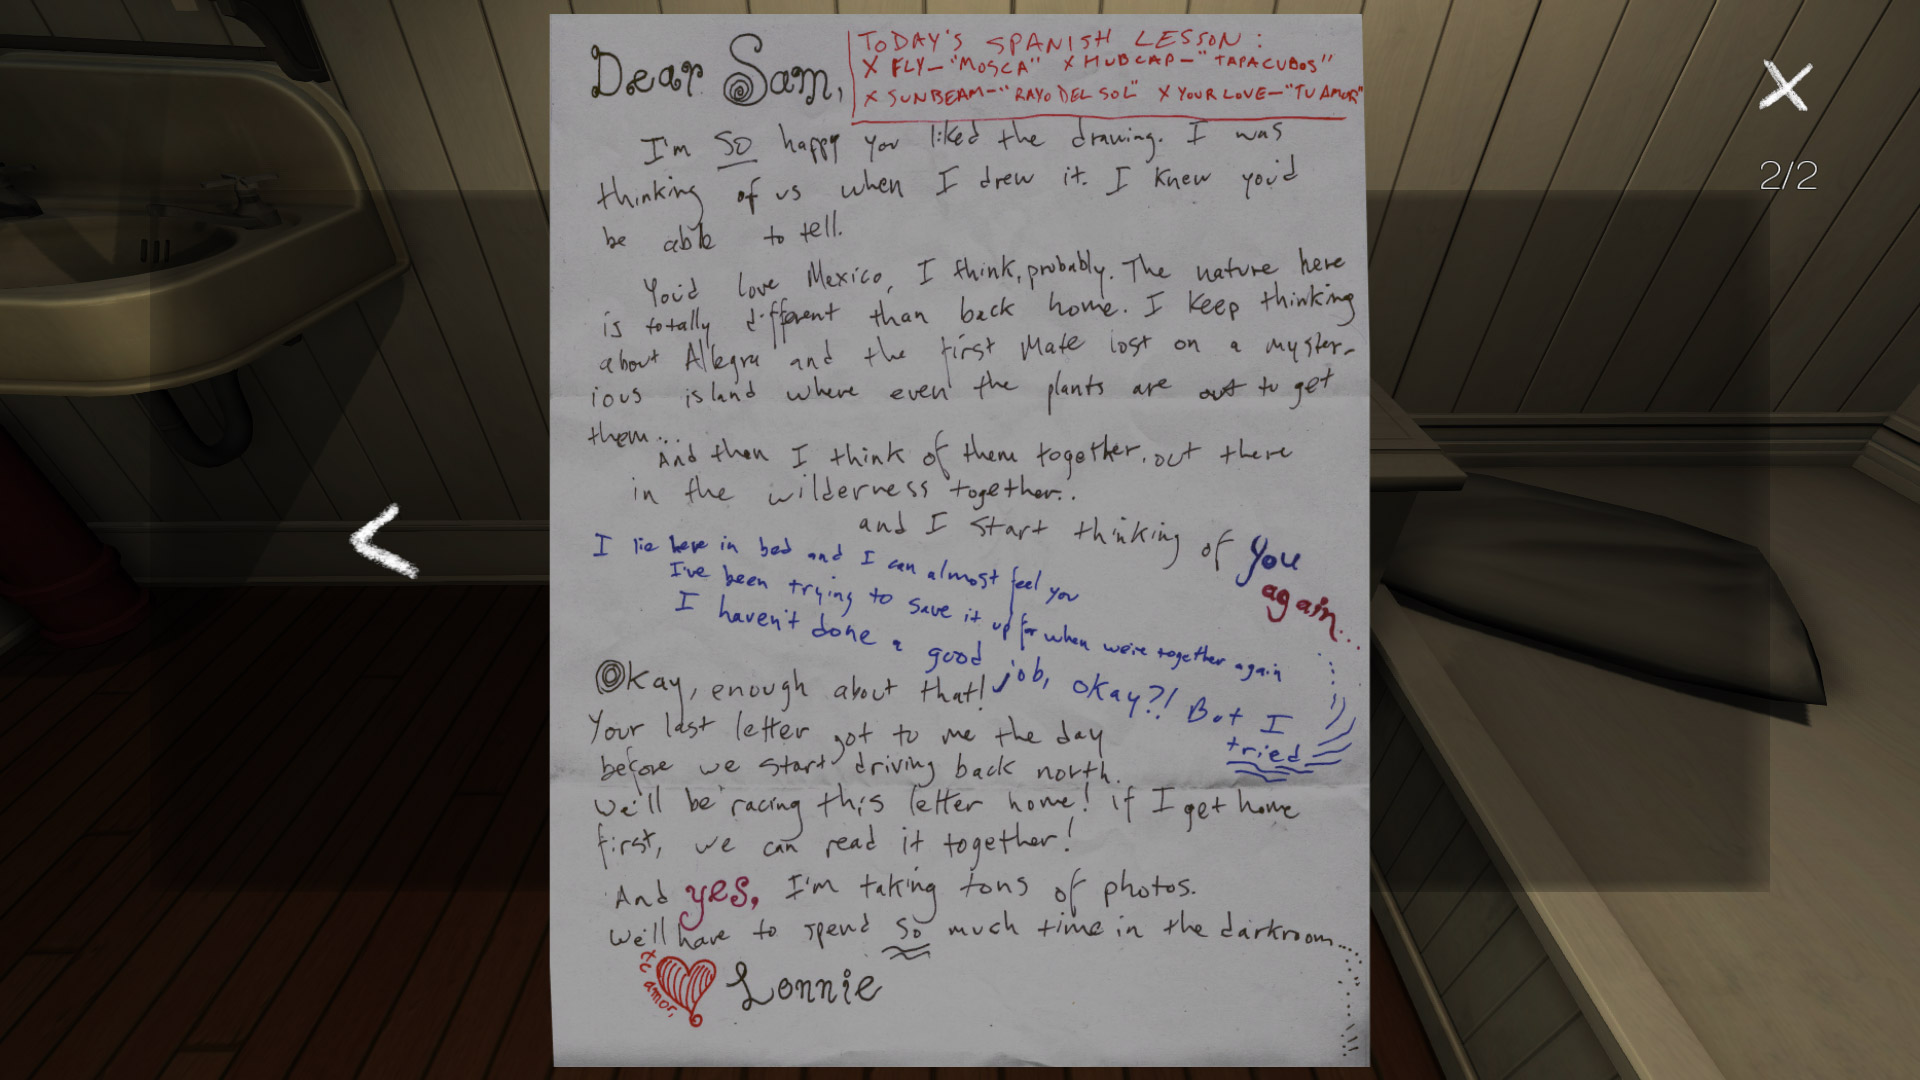 Dear Sam,
TODAY'S SPANISH LESSON:
X FLY—"MOSCA" X HUBCAP—"TAPACUBOS"
X SUNBEAM—"RAYO DEL SOL" X YOUR LOVE—"TU AMOR"
I'm SO happy you liked the drawing. I was
thinking of us when I drew it. I knew you'd
be able to tell.
You'd love Mexico, I think, probably. The nature here
is totally different than back home. I keep thinking
about Allegra and the First Mate lost on a myster-
ious island where even the plants are out to get
them...
And then I think of them together, out there
in the wilderness together..
and I start thinking of you
again...
I lie here in bed and I can almost feel you
I've been trying to save it up for when we're together again
I haven't done a good job, okay?! But I
tried
Okay, enough about that!
Your last letter got to me the day
before we start driving back north.
We'll be racing this letter home! if I get home
first, we can read it together!
And yes, I'm taking tons of photos.
We'll have to spend so much time in the darkroom...
te amor,
Lonnie
2/2